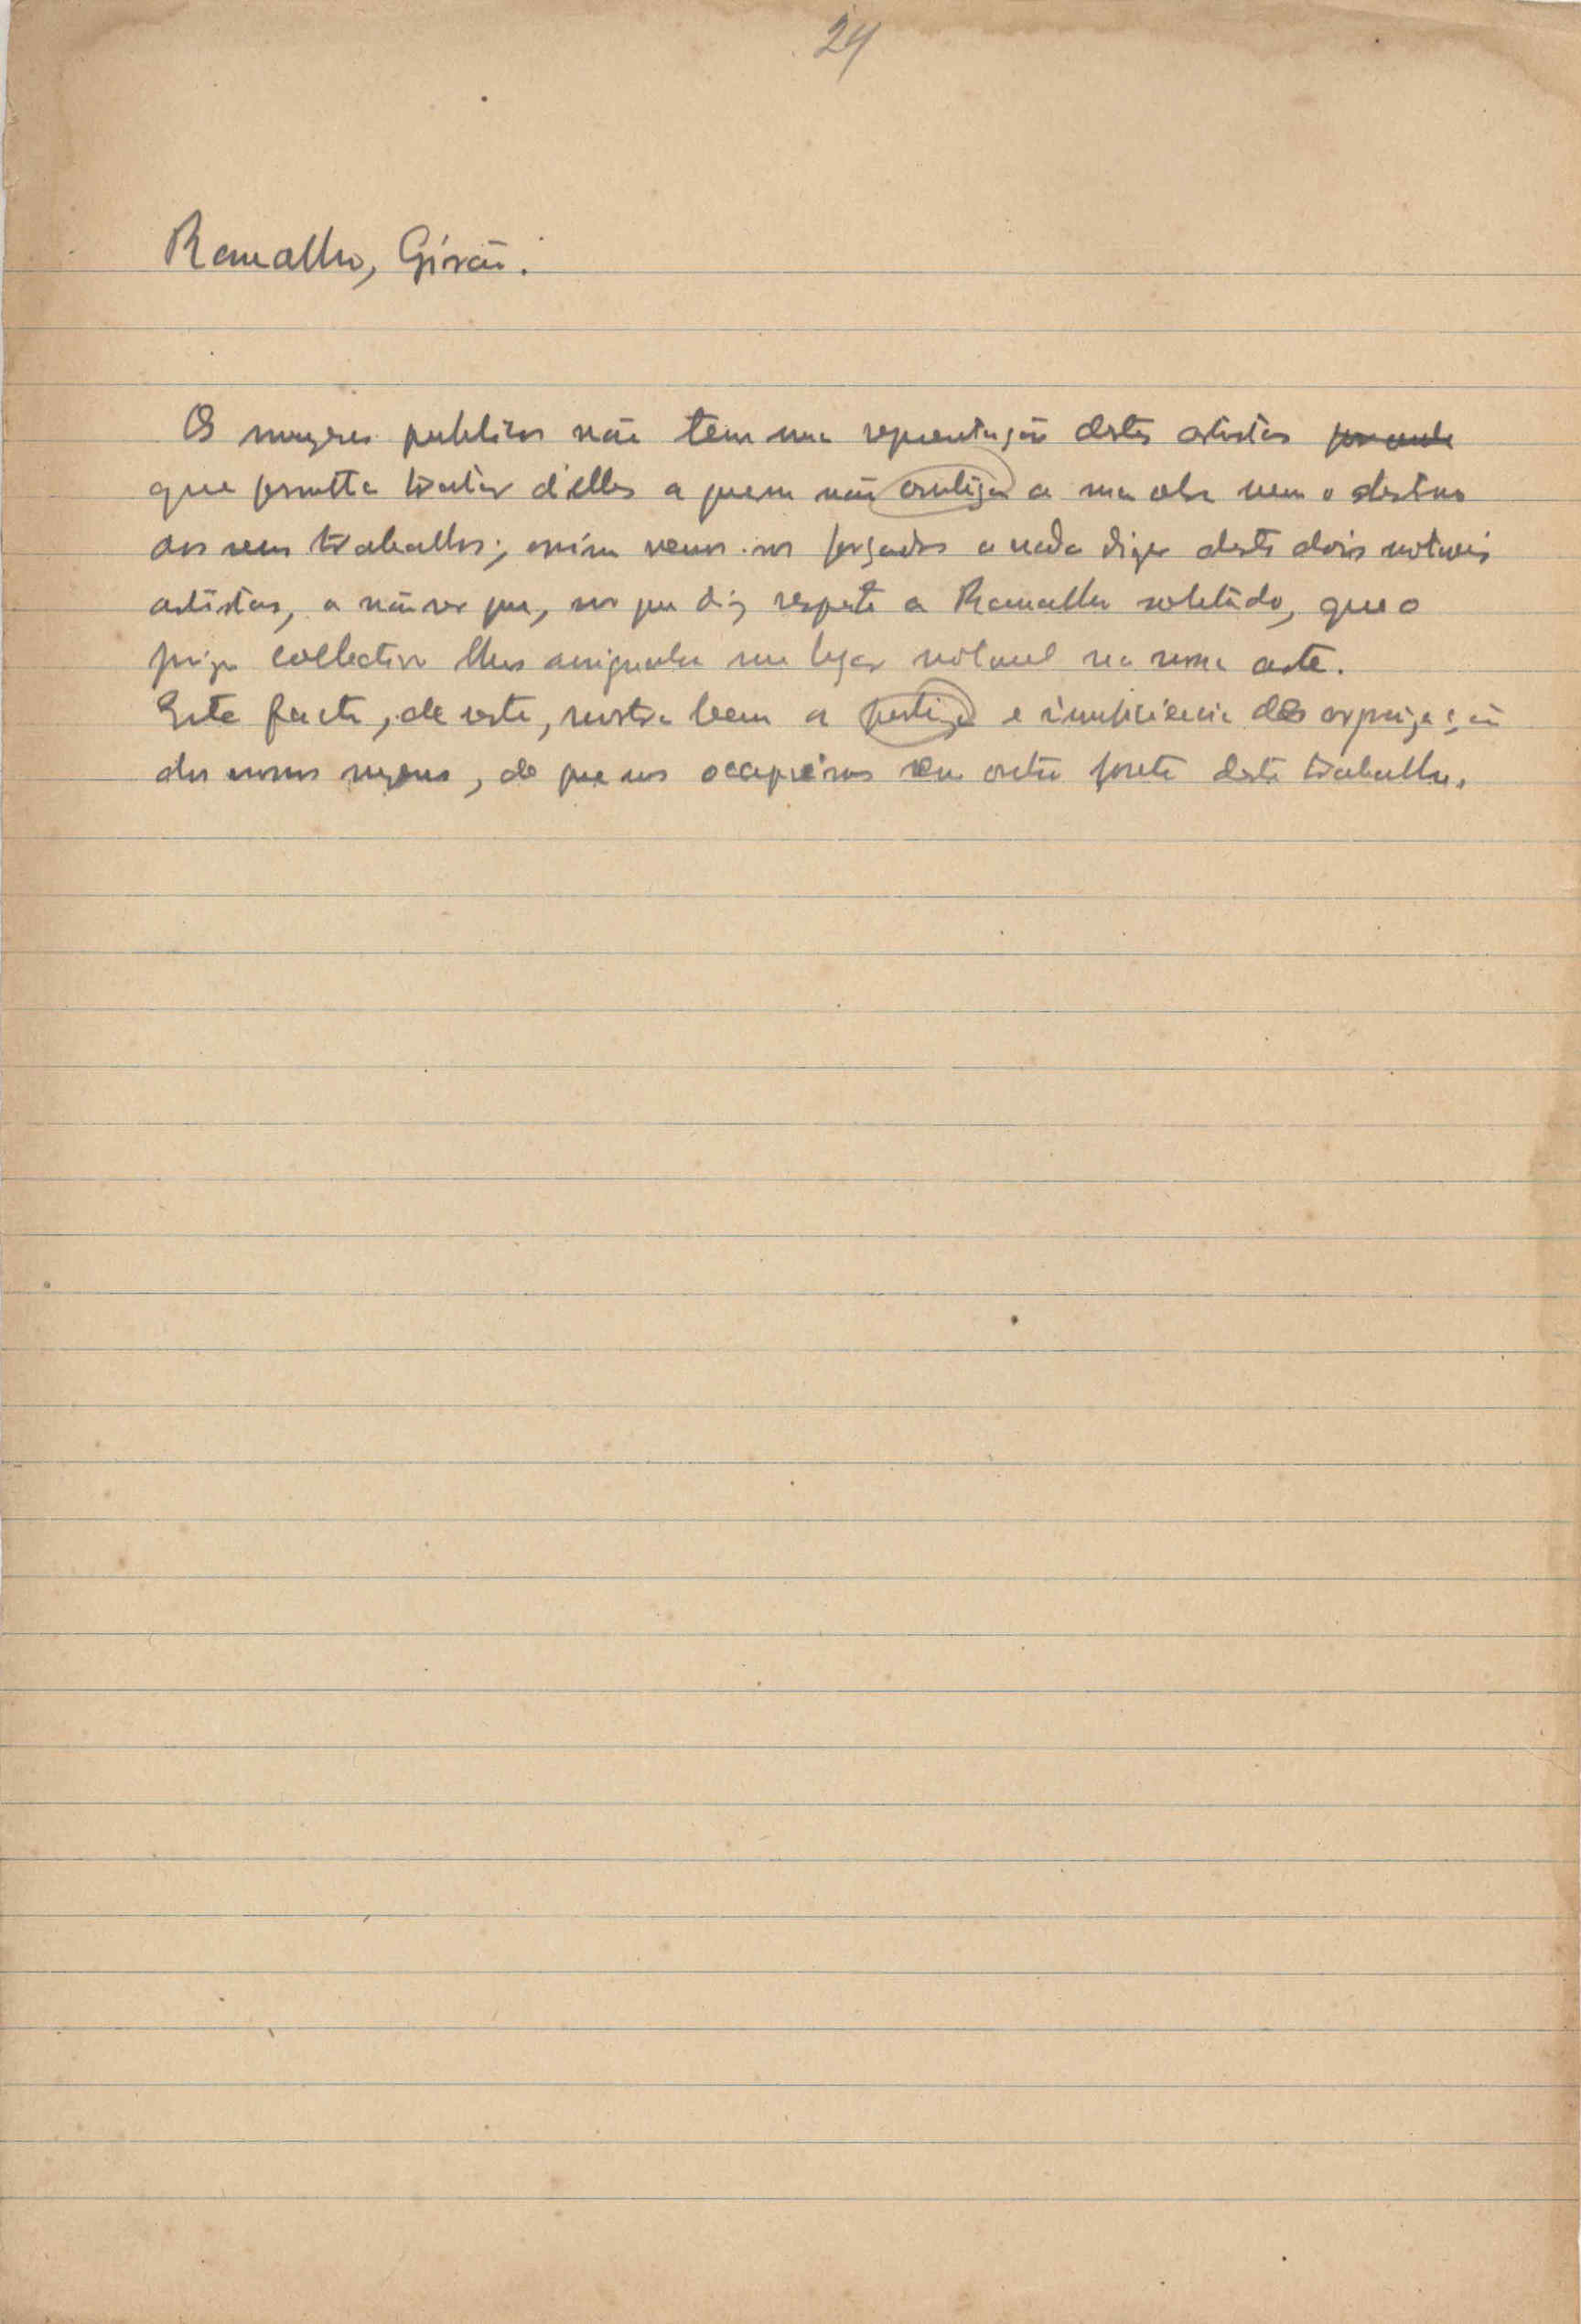 24
Ramalho, Girão.
Os museus publicos não têm uma representação destes artistas
que permitta tratar d'elles a quem não a sua obra nem o destino
dos seus trabalhos; assim vemo-nos forçados a nada dizer destes dois notaveis
artistas, a não ser que, no que diz respeito a Ramalho sobretudo, que o
juizo collectivo lhes assignala um logar notavel na nossa arte.
Este facto, de resto, mostra bem a e insufficiencia da organização
dos nossos museus, de que nos occupámos em outro ponto deste trabalho.